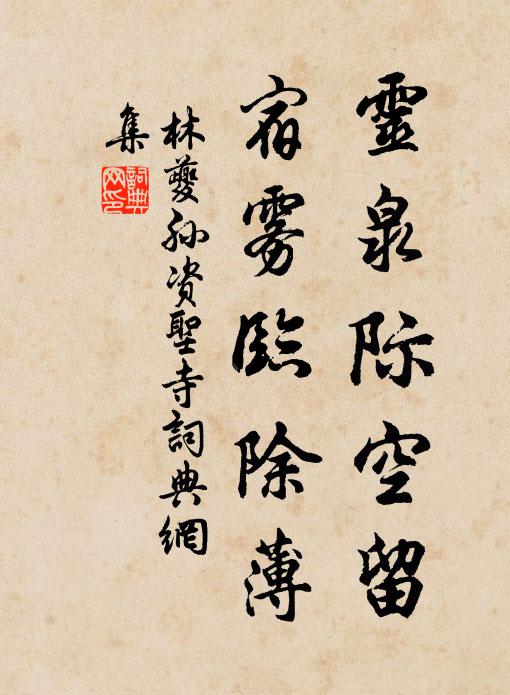 靈泉际空留
宿雾臨除薄
林夔孙资聖寺詞典網
集
詞典
网印